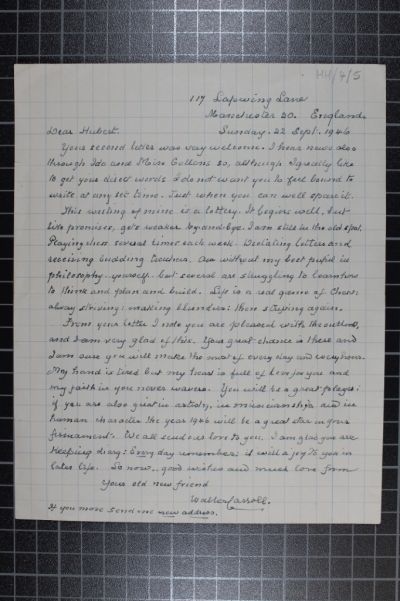 HH/4/5
117 Lapwing Lane
Manchester 20. England.
Dear Hubert. Sunday. 22 Sept. 1946
Your second letter was very welcome. I hear news also
through Ida and Miss Cullen so, although I greatly like
to get your direct words I do not want you to feel bound to
write at any set time. Just when you can well spare it.
This writing of mine is a lottery. It begins well, but
like promises, gets weaker by-and-bye. I am still in the old spot.
Playing chess several times each week. Dictating letters and
receiving budding teachers. Am without my best pupil in
philosophy – yourself – but several are struggling to learn how
to think and plan and build. Life is a real game of Chess:
always striving: making blunders: then striving again.
From your letter I note you are pleased with the outlook,
and I am very glad of this. Your great chance is there and
I am sure you will make the most of every day and every hour.
My hand is tired but my heart is full of love for you and
my faith in you never wavers. You will be a great player:
if you are also great in artistry, in musicianship and in
human character the year 1946 will be a great star in your
firmament. We all send our love to you. I am glad you are
keeping diary: Every day remember: it will a joy to you in
later life. So now.. good wishes and much love from
Your old new friend
Walter Carroll.
If you move send me new address.